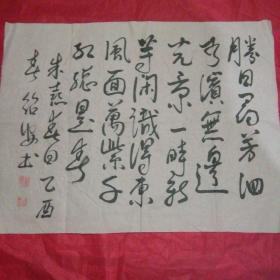 勝日尋芳泗
水濱無邊
光景一時新
等閑識得東
風面萬紫千
紅總是春
朱熹春日乙酉
春 書